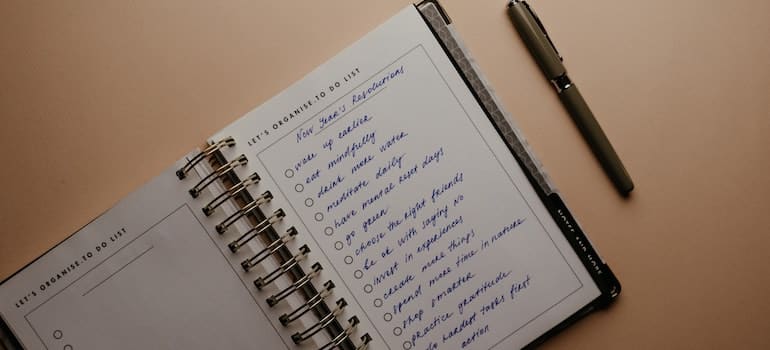 LET'S ORGANISE.TO DO LIST
LET'S ORGANISE.TO DO LIST
New Year's Resolutions
wake up earlier
eat mindfully
drink more water
meditate daily
have mental reset days
go green
choose the right friends
be ok with saying no
invest in experiences
create more things
spend more time in nature
shop smarter
practice gratitude
do hardest tasks first
action